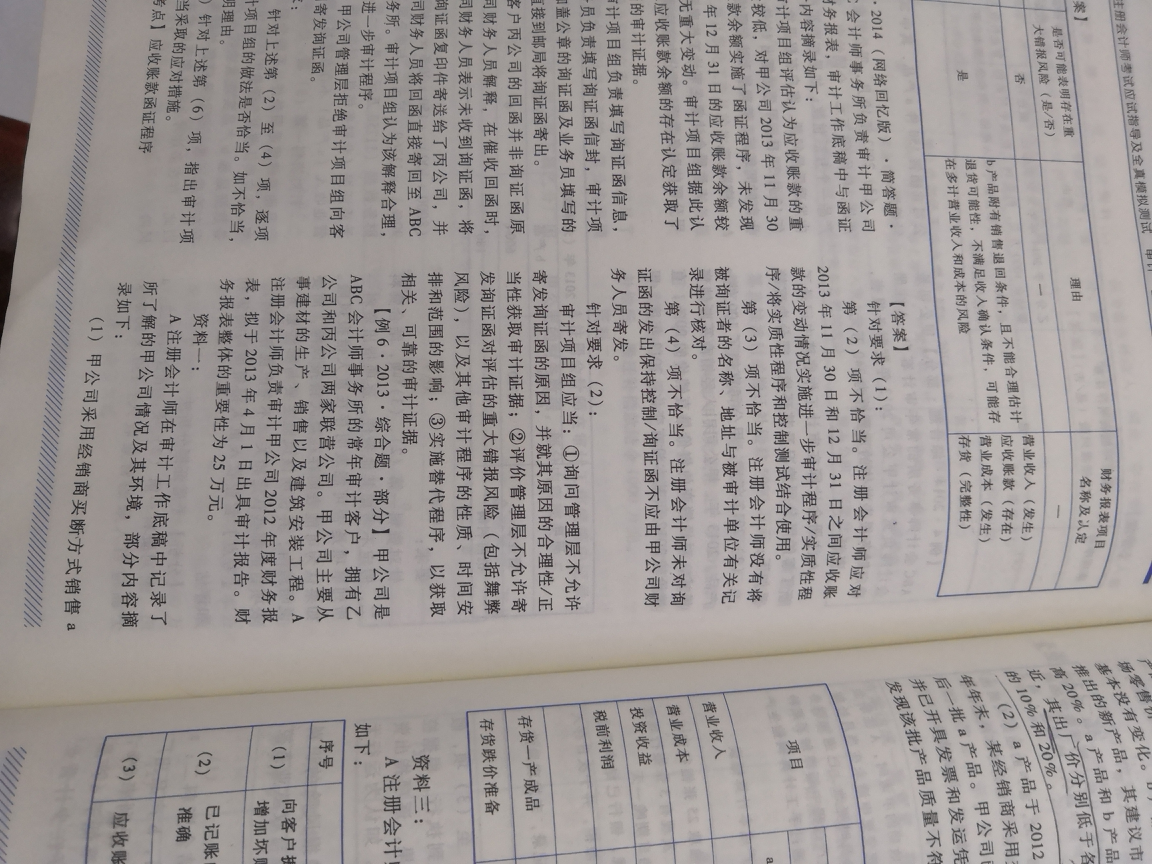 注册会计师考试应试指导及全真模拟测试 审计
案】
是否可能表明存在重
大错报风险（是/否）
理由
财务报表项目
名称及认定
否
—
—
是
b产品附有销售退回条件，且不能合理估计
退货可能性，不满足收入确认条件，可能存
在多计营业收入和成本的风险
营业收入（发生）
应收账款（存在）
营业成本（发生）
存货（完整性）
·2014（网络回忆版）·简答题·
会计师事务所负责审计甲公司
财务报表，审计工作底稿中与函证
内容摘录如下：
计项目组评估认为应收账款的重
较低，对甲公司 2013 年 11 月 30
款余额实施了函证程序，未发现
年 12 月 31 日的应收账款余额较
无重大变动。审计项目组据此认
应收账款余额的存在认定获取了
的审计证据。
计项目组负责填写询证函信息，
员负责填写询证函信封，审计项
盖公章的询证函及业务员填写的
直接到邮局将询证函寄出。
客户丙公司的回函并非询证函原
司财务人员解释，在催收回函时，
司财务人员表示未收到询证函，将
询证函复印件寄送给了丙公司，并
司财务人员将回函直接寄回至 ABC
务所。审计项目组认为该解释合理，
进一步审计程序。
甲公司管理层拒绝审计项目组向客
寄发询证函。
：
）针对上述第（2）至（4）项，逐项
计项目组的做法是否恰当。如不恰当，
明理由。
）针对上述第（6）项，指出审计项
当采取的应对措施。
考点】应收账款函证程序
【答案】
针对要求（1）：
第（2）项不恰当。注册会计师应对
2013 年 11 月 30 日和 12 月 31 日之间应收账
款的变动情况实施进一步审计程序/实质性程
序/将实质性程序和控制测试结合使用。
第（3）项不恰当。注册会计师没有将
被询证者的名称、地址与被审计单位有关记
录进行核对。
第（4）项不恰当。注册会计师未对询
证函的发出保持控制/询证函不应由甲公司财
务人员寄发。
针对要求（2）：
审计项目组应当：①询问管理层不允许
寄发询证函的原因，并就其原因的合理性/正
当性获取审计证据；②评价管理层不允许寄
发询证函对评估的重大错报风险（包括舞弊
风险），以及其他审计程序的性质、时间安
排和范围的影响；③实施替代程序，以获取
相关、可靠的审计证据。
【例 6·2013·综合题·部分】甲公司是
ABC 会计师事务所的常年审计客户，拥有乙
公司和丙公司两家联营公司。甲公司主要从
事建材的生产、销售以及建筑安装工程。A
注册会计师负责审计甲公司 2012 年度财务报
表，拟于 2013 年 4 月 1 日出具审计报告。财
务报表整体的重要性为 25 万元。
资料一：
A 注册会计师在审计工作底稿中记录了
所了解的甲公司情况及其环境，部分内容摘
录如下：
（1）甲公司采用经销商买断方式销售 a
场零售价
基本没有变化。
推出的新产品，其建议市
20%。a 产品和 b 产品
高，其出厂价分别低于各
近，
的 10% 和 20%。
（2）a 产品于 2012
年年末，某经销商采用
后一批 a 产品。甲公司
并已开具发票和发运凭
发现该批产品质量不符
项目
营业收入
营业成本
投资收益
税前利润
存货—产成品
存货跌价准备
资料三：
A 注册会计
如下：
序号
（1）
向客户
增加坏
（2）
已记账
准确
（3）
应收账